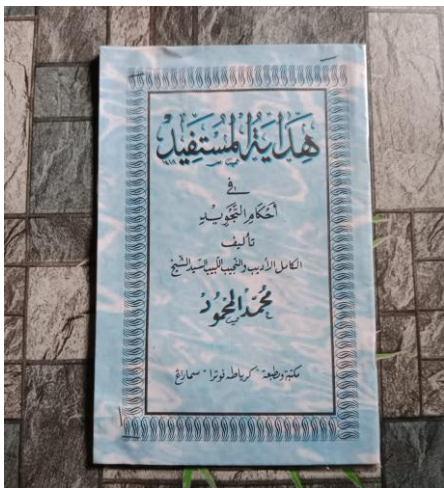 هداية المستفيد
في
أحكام التجويد
تأليف
الكامل الأديب والنجيب اللبيب السيد الشيخ
محمد المحمود
مكتبة ومطبعة "كرياطه فوترا" سماراغ